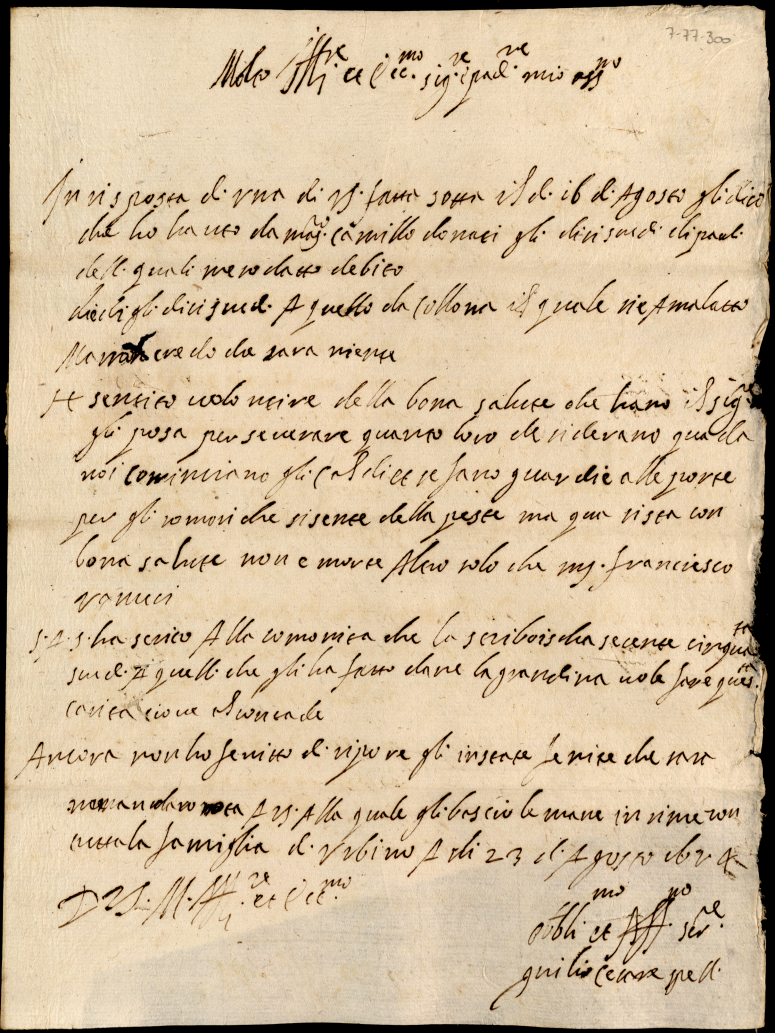 7-77-300
Molto Ill.re et Ecc.mo sig.re e pad.re mio oss.mo
In risposta di vna di vs. fatta sotta il di 16 di Agosto gli dico
che ho hauto da mag. Camillo donati gli dicisudi di pauli
delli quali ne ro datto debito
diedi gli A quello da Collona il quale sie Amalatto
Ma credo che sara niente
sentito uolo ntire della bona salute che hano il sig.re
gli posa perseuerare quanto loro desiderano qua da
noi cominciano gli Caldi et se fano guardie alle porte
per gli romori che si sente della peste ma qua si sta con
bona salute non e morte Altro solo che mg. francescco
vanuci
S. A. S. ha scrito Alla comonita che la secente cinqua
scudi A quelli che gli ha fatto dane la grandina uole fare
carita cioue
Ancora non ho fenitto di ripore gli instate fenite che sara
A vs. Alla quale gli bascio le mane insieme con
tutta la famiglia di Vrbino A di 23 di Agosto
D V S. M. Ill.re et Ecc.mo
obbli.mo et Aff.mo ser.re
Cesare